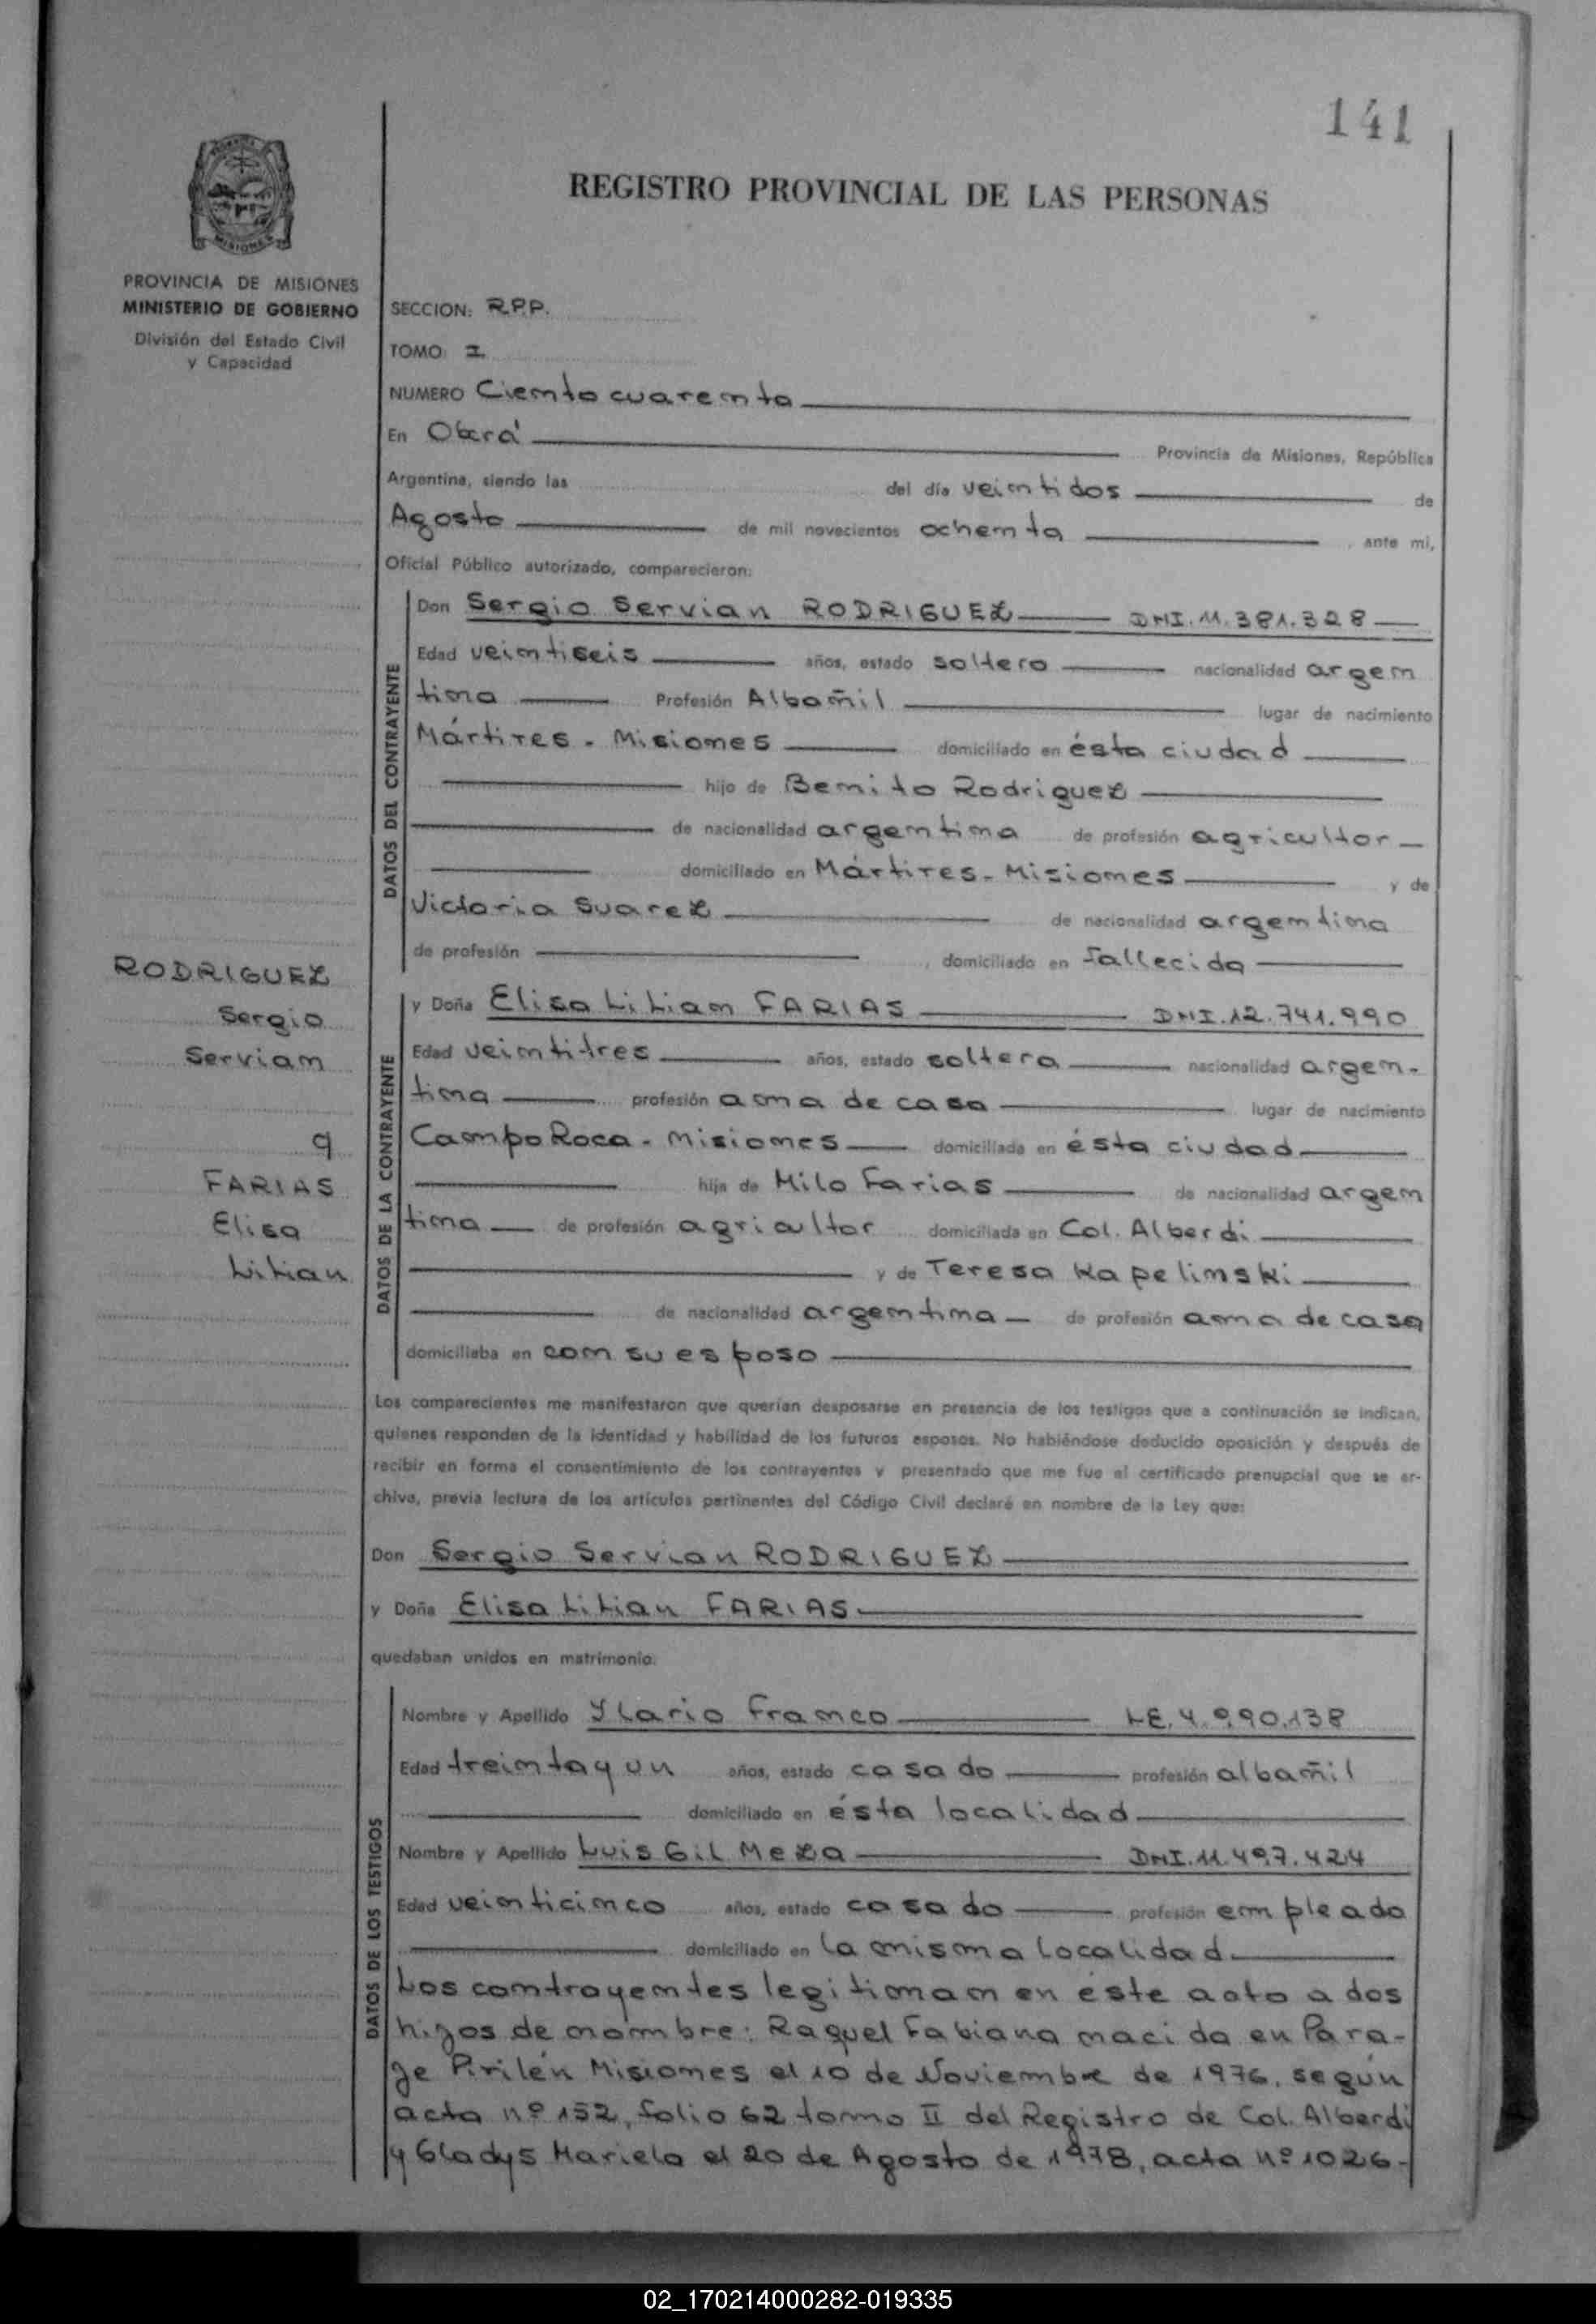 141
REGISTRO PROVINCIAL DE LAS PERSONAS
MISIONES
PROVINCIA DE MISIONES
MINISTERIO DE GOBIERNO
División del Estado Civil
y Capacidad
SECCION: R.P.P.
TOMO: I
NUMERO Ciento cuarenta
En Oberá Provincia de Misiones, República
Argentina, siendo las del día veintidos de
Agosto de mil novecientos ochenta, ante mi,
Oficial Público autorizado, comparecieron:
DATOS DEL CONTRAYENTE
Don Sergio Servian RODRIGUEZ DNI. 11.381.328
Edad veintiseis años, estado soltero nacionalidad argen
tina Profesión Albañil lugar de nacimiento
Mártires - Misiones domiciliado en ésta ciudad
hijo de Benito Rodriguez
de nacionalidad argentina de profesión agricultor
domiciliado en Mártires - Misiones y de
Victoria Suarez de nacionalidad argentina
de profesión , domiciliado en fallecida
RODRIGUEZ
Sergio
Servian
y
FARIAS
Elisa
Lilian
DATOS DE LA CONTRAYENTE
y Doña Elisa Lilian FARIAS DNI. 12.741.990
Edad veintitres años, estado soltera nacionalidad argen-
tina profesión ama de casa lugar de nacimiento
Campo Roca - Misiones domiciliada en ésta ciudad
hija de Milo Farias de nacionalidad argen
tina de profesión agricultor domiciliada en Col. Alberdi
y de Teresa Kapelinski
de nacionalidad argentina de profesión ama de casa
domiciliaba en con su esposo
Los comparecientes me manifestaron que querían desposarse en presencia de los testigos que a continuación se indican,
quienes responden de la identidad y habilidad de los futuros esposos. No habiéndose deducido oposición y después de
recibir en forma el consentimiento de los contrayentes y presentado que me fue el certificado prenupcial que se ar-
chiva, previa lectura de los artículos pertinentes del Código Civil declaré en nombre de la Ley que:
Don Sergio Servian RODRIGUEZ
y Doña Elisa Lilian FARIAS
quedaban unidos en matrimonio.
DATOS DE LOS TESTIGOS
Nombre y Apellido Ylario Franco LE. 4.990.138
Edad treinta y un años, estado casado profesión albañil
domiciliado en ésta localidad
Nombre y Apellido Luis Gil Meza DNI. 11.497.424
Edad veinticinco años, estado casado profesión empleado
domiciliado en la misma localidad
Los contrayentes legitiman en éste acto a dos
hijos de nombre: Raquel Fabiana nacida en Para-
je Pirilén Misiones el 10 de Noviembre de 1976, según
acta nº 152, folio 62 tomo II del Registro de Col. Alberdi
y Gladys Mariela el 20 de Agosto de 1978, acta nº 1026-
02_170214000282-019335